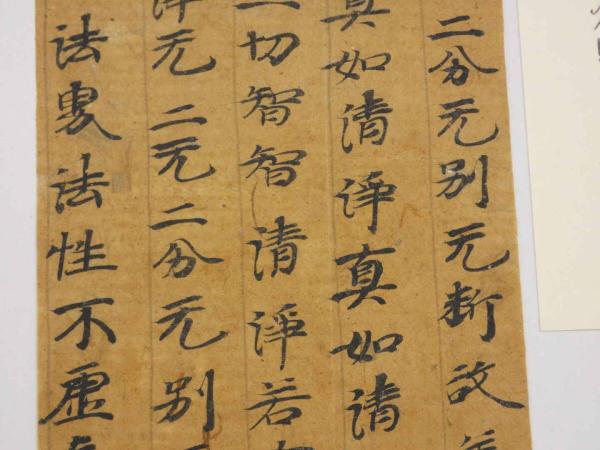 二分无別无断故
真如清淨真如清
一切智智清淨若
淨无二无二分无別
法界法性不虛